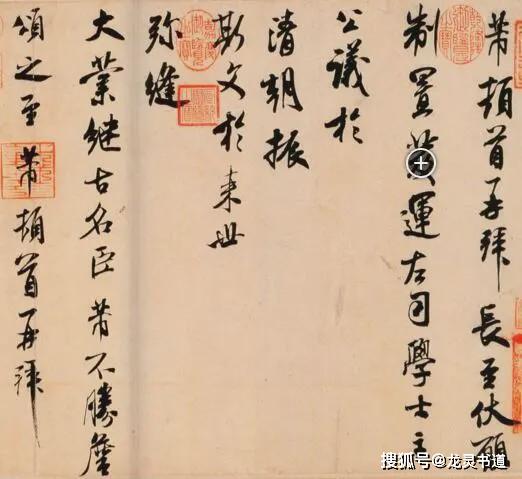 芾頓首再拜長至伏願
制置發運左司學士主
公議於
清朝振
斯文於来世
弥縫
大業継古名臣芾不勝詹
頌之至芾頓首再拜
搜狐号@龙灵书道